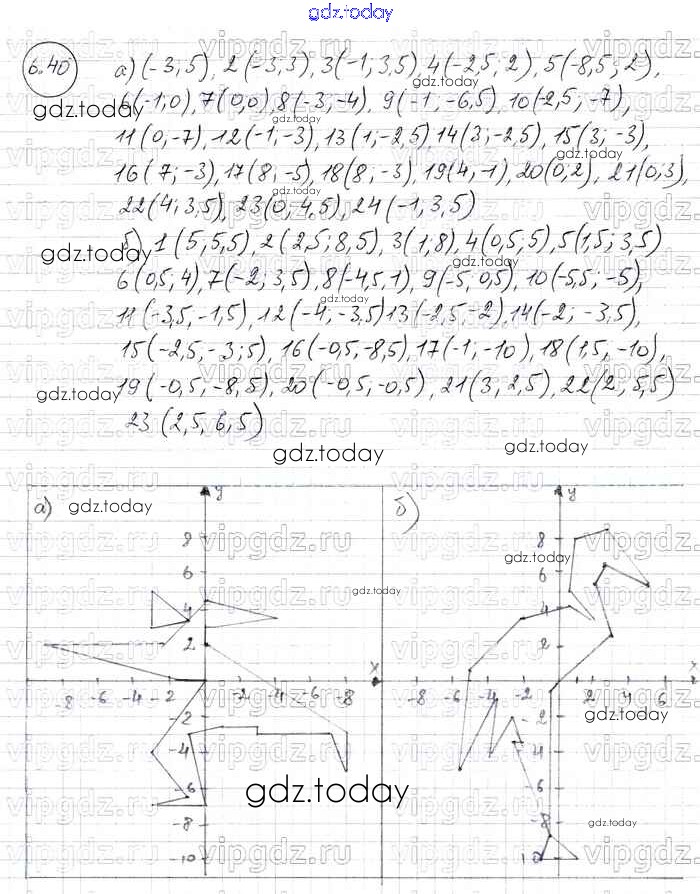 gdz.today
6.40 а) (-3; 5), 2 (-3; 3), 3(-1; 3,5), 4(-2,5; 2), 5(-8,5; 2),
6(-1; 0), 7(0; 0), 8(-3; -4), 9(-1; -6,5), 10(-2,5; -7),
11(0; -7), 12(-1; -3), 13(1; -2,5) 14(3; -2,5), 15(3; -3),
16(7; -3), 17(8; -5), 18(8; -3), 19(4, -1), 20(0,2), 21(0,3),
22(4; 3,5), 23(0; 4,5), 24(-1, 3,5)
б) 1(5; 5,5), 2(2,5; 8,5), 3(1; 8), 4(0,5; 5), 5(1,5; 3,5)
6(0,5; 4), 7(-2; 3,5), 8(-4,5, 1), 9(-5, 0,5), 10(-5,5; -5),
11(-3,5, -1,5), 12(-4, -3,5) 13(-2,5, -2), 14(-2; -3,5),
15(-2,5, -3;5), 16(-0,5, -8,5), 17(-1; -10), 18(1,5, -10),
19(-0,5; -8,5), 20(-0,5, -0,5), 21(3, 2,5), 22(2, 5,5)
23 (2,5, 6,5)
gdz.today
gdz.today
а) gdz.today y
8
6
4
2
-8 -6 -4 -2 -2 -4 -6 -8 x
-2
-4
-6
-8
-10
б) y
8
6
4
2
-8 -6 -4 -2 2 4 6 x
-2
-4
-6
-8
10
gdz.today
vipgdz.ru